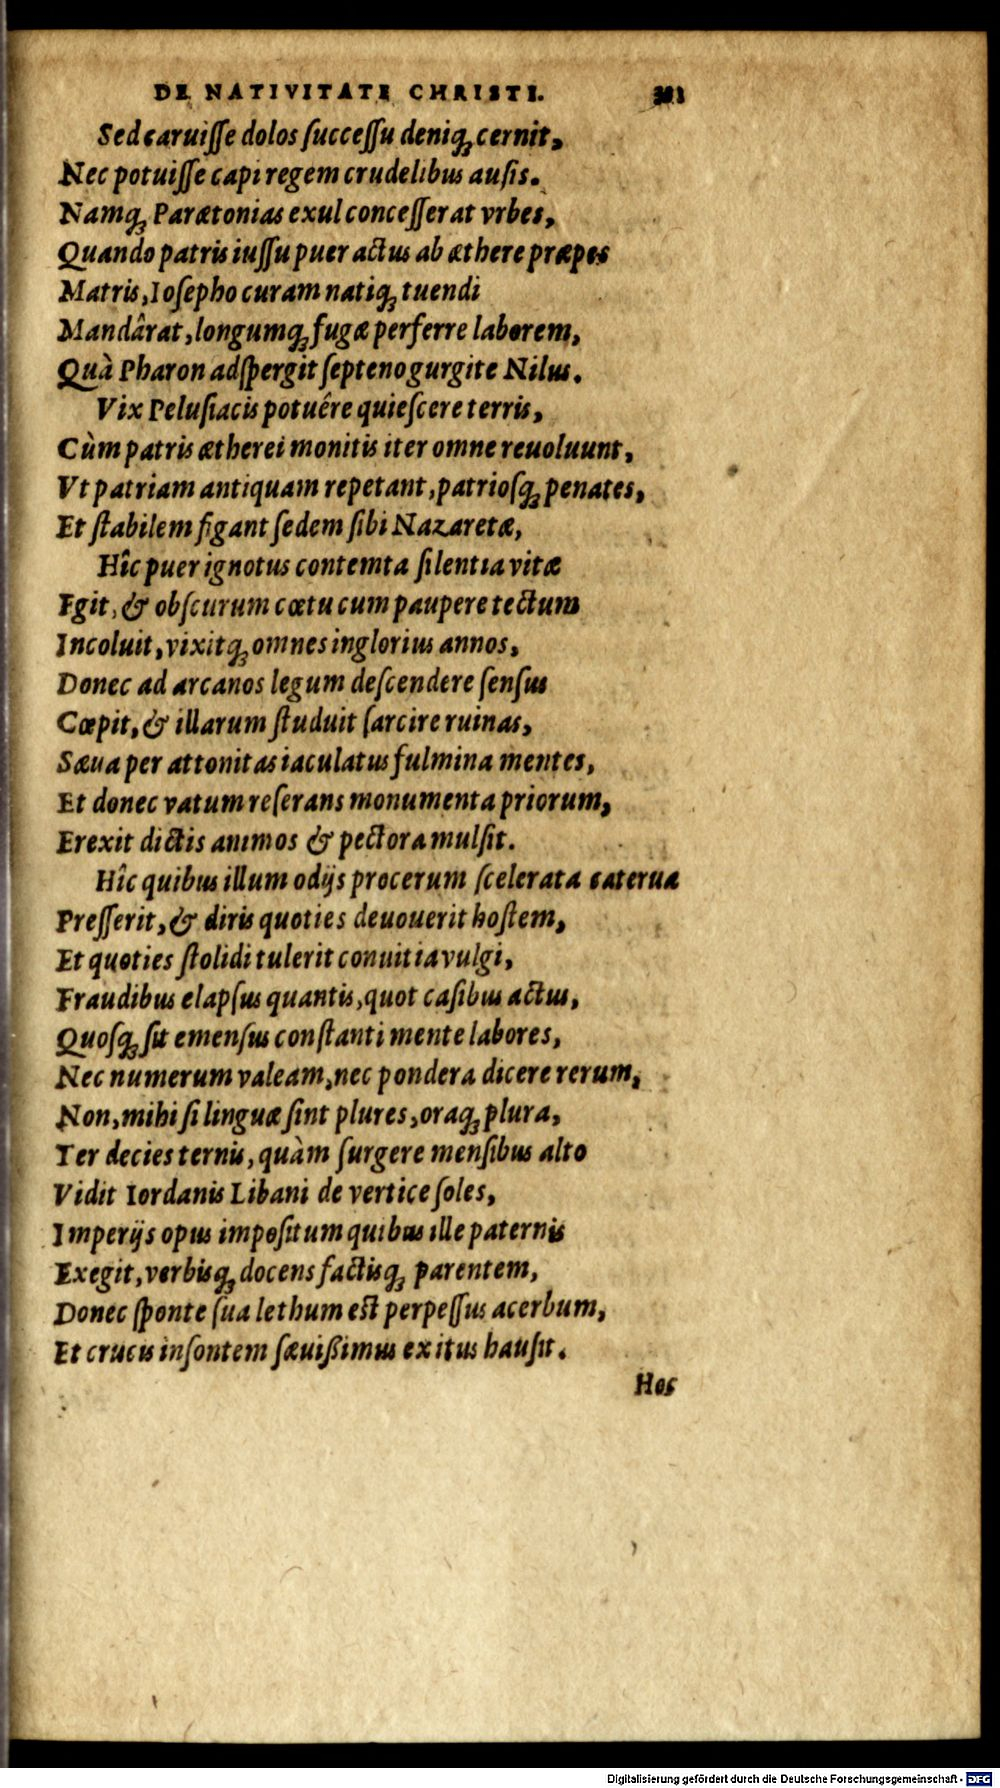 DE NATIVITATE CHRISTI.
Sed caruisse dolos successu deniq; cernit,
Nec potuisse capi regem crudelibus ausis.
Namq; Parætonias exul concesserat vrbes,
Quando patris iussu puer actus ab æthere præpes
Matris, Iosepho curam natiq; tuendi
Mandârat, longumq; fugæ perferre laborem,
Quà Pharon adspergit septeno gurgite Nilus.
Vix Pelusiacis potuêre quiescere terris,
Cùm patris ætherei monitis iter omne reuoluunt,
Vt patriam antiquam repetant, patriosq; penates,
Et stabilem figant sedem sibi Nazaretæ,
Hîc puer ignotus contemta silentia vitæ
Egit, & obscurum cœtu cum paupere tectum
Incoluit, vixitq; omnes inglorius annos,
Donec ad arcanos legum descendere sensus
Cœpit, & illarum studuit sarcire ruinas,
Sæua per attonitas iaculatus fulmina mentes,
Et donec vatum reserans monumenta priorum,
Erexit dictis animos & pectora mulsit.
Hîc quibus illum odijs procerum scelerata caterua
Presserit, & diris quoties deuouerit hostem,
Et quoties stolidi tulerit conuitia vulgi,
Fraudibus elapsus quantis, quot casibus actus,
Quosq; sit emensus constanti mente labores,
Nec numerum valeam, nec pondera dicere rerum,
Non, mihi si linguæ sint plures, oraq; plura,
Ter decies ternis, quàm surgere mensibus alto
Vidit Iordanis Libani de vertice soles,
Imperijs opus impositum quibus ille paternis
Exegit, verbisq; docens factisq; parentem,
Donec sponte sua lethum est perpessus acerbum,
Et crucis insontem sæuißimus exitus hausit.
Hos
Digitalisierung gefördert durch die Deutsche Forschungsgemeinschaft - DFG